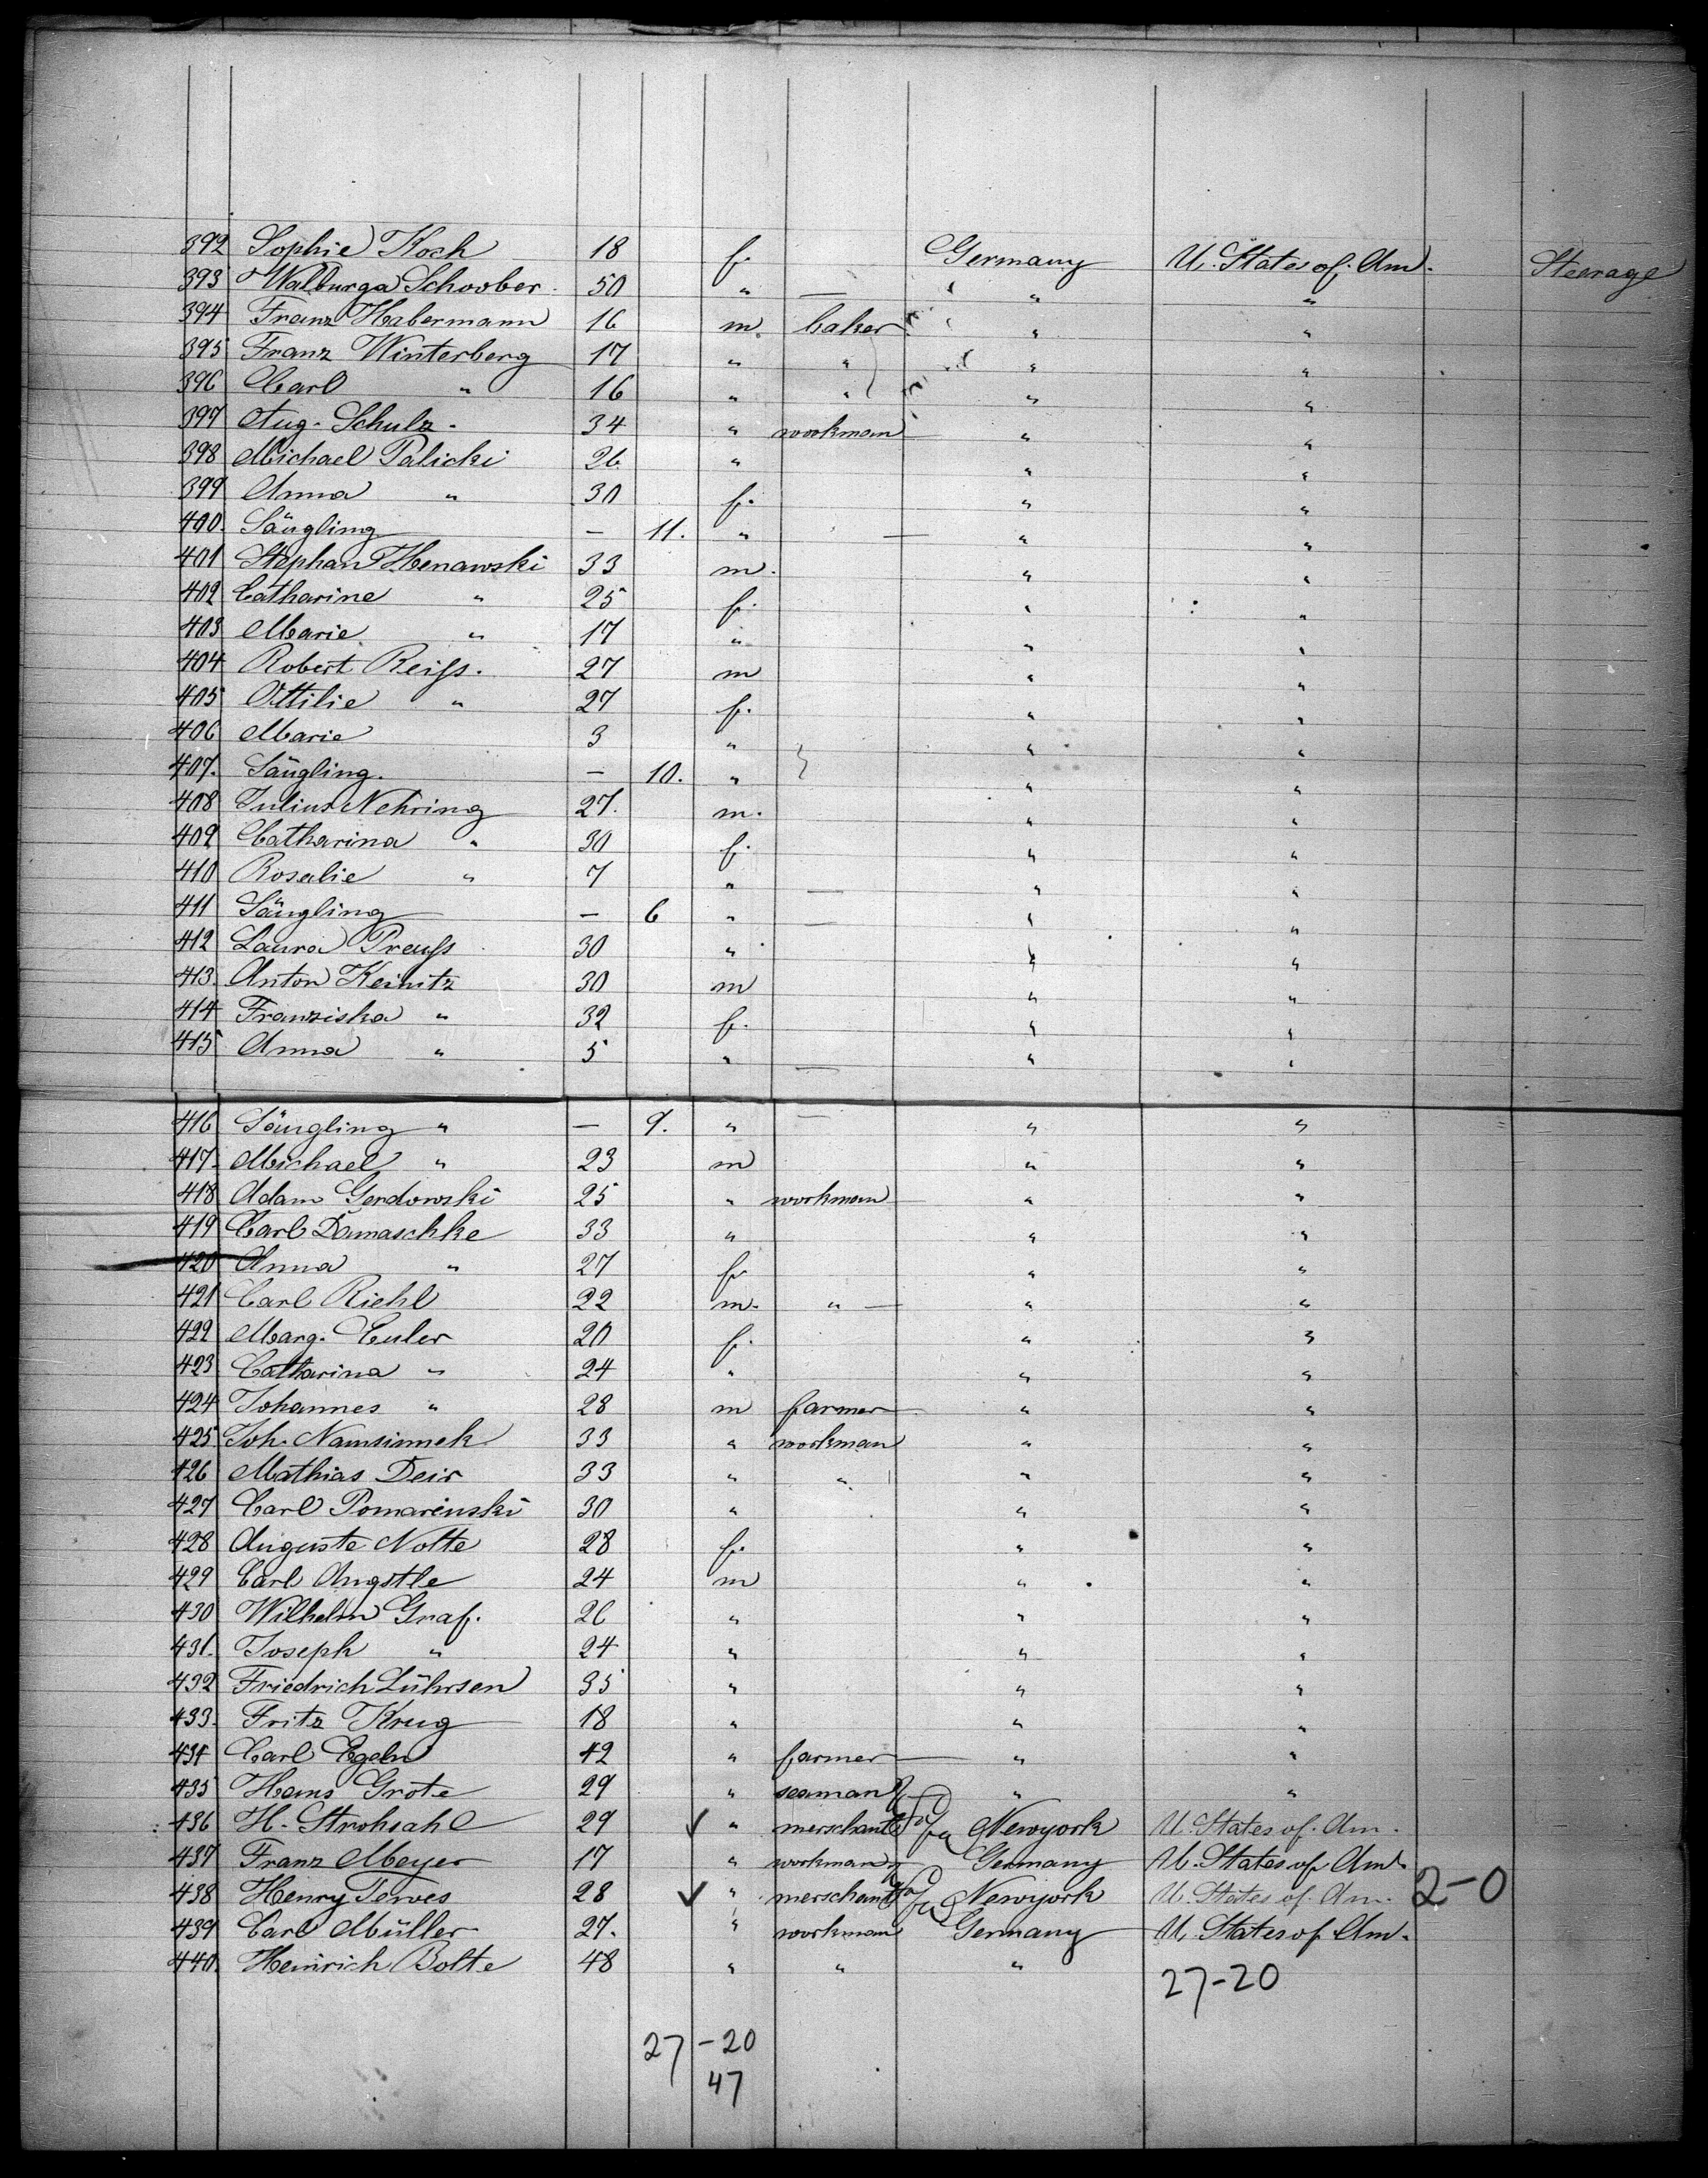 392 Sophie Koch 18 f. Germany U. States of Am. Steerage
393 Walburga Schoober 50 " — " "
394 Franz Habermann 16 m. baker " "
395 Franz Winterberg 17 " " " "
396 Carl " 16 " " " "
397 Aug. Schulz 34 " workman " "
398 Michael Palicki 26 " " "
399 Anna " 30 f. " "
400. Säugling — 11. " — " "
401 Stephan Henawski 33 m. " "
402 Catharine " 25 f. " "
403 Marie " 17 " " "
404 Robert Reiss. 27 m " "
405 Ottilie " 27 f. " "
406 Marie 3 " " "
407. Säugling. — 10. " " "
408 Julius Nehring 27. m. " "
409 Catharina " 30 f. " "
410 Rosalie " 7 " — " "
411 Säugling — 6 " — " "
412 Laura Preuss 30 " " "
413. Anton Keinitz 30 m " "
414 Franziska " 32 f. " "
415 Anna " 5 " — " "
416 Säugling " — 9. " — " "
417. Michael " 23 m " "
418 Adam Gerdowski 25 " workman " "
419 Carl Damaschke 33 " " "
420 Anna " 27 f. " "
421 Carl Riehl 22 m. " " "
422 Marg. Euler 20 f. " "
423 Catharina " 24 " " "
424 Johannes " 28 m farmer " "
425. Joh. Namsinnek 33 " workman " "
426 Mathias Deir 33 " " " "
427 Carl Pomarenski 30 " " "
428 Auguste Nolte 28 f. " "
429 Carl Angstle 24 m " "
430 Wilhelm Graf. 26 " " "
431. Joseph " 24 " " "
432 Friedrich Lührsen 35 " " "
433. Fritz Krug 18 " " "
434 Carl Egeln 42 " farmer " "
435 Hans Grote 29 " seaman " "
436 H. Strohsahl 29 ✓ " merschant Newyork U. States of Am.
437 Franz Meyer 17 " workman Germany U. States of Am.
438 Henry Tewes 28 ✓ " merschant Newyork U. States of Am. 2-0
439 Carl Müller 27. " workman Germany U. States of Am.
440. Heinrich Bolte 48 " " "
27-20
27-20
47